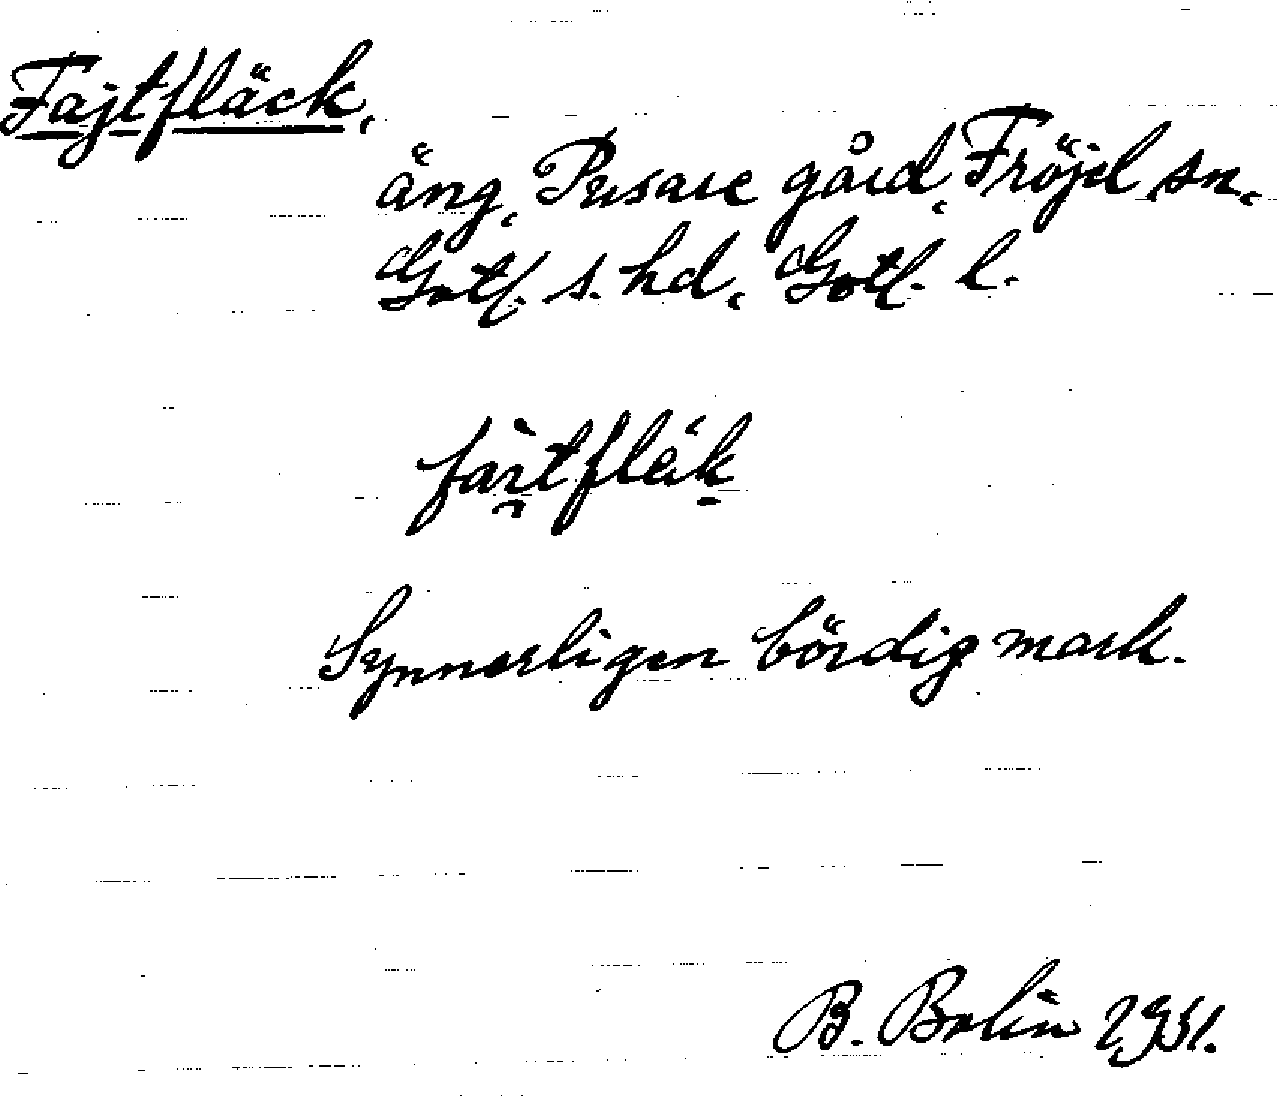 Fajtfläck,
äng, Pusare gård, Fröjel sn,
Gotl. s. hd, Gotl. l.
fài̯tflák̠
Synnerligen bördig mark.
B. Bolin 1931.